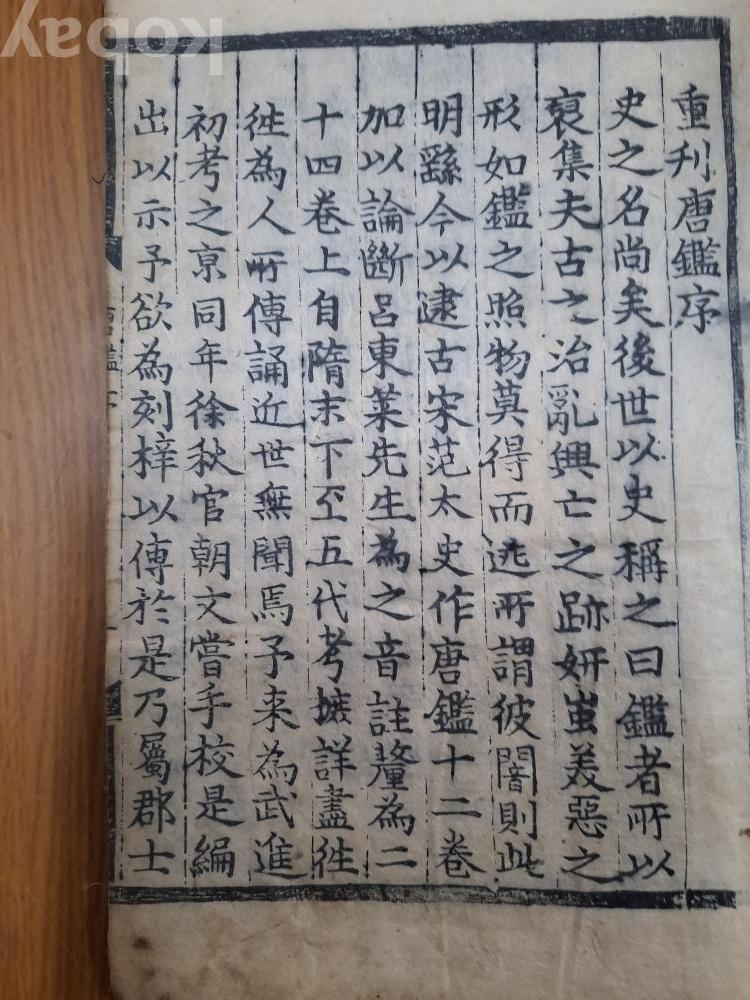 重刋唐鑑序
史之名尚矣後世以史稱之曰鑑者所以
裒集夫古之治亂興亡之跡妍蚩美惡之
形如鑑之照物莫得而逃所謂彼闇則此
明繇今以逮古宋范太史作唐鑑十二卷
加以論斷呂東萊先生為之音註釐為二
十四卷上自隋末下至五代考摭詳盡徃
徃為人所傳誦近世無聞焉予来為武進
初考之京同年徐秋官朝文嘗手校是編
出以示予欲為刻梓以傳於是乃屬郡士
唐鑑序
kobay